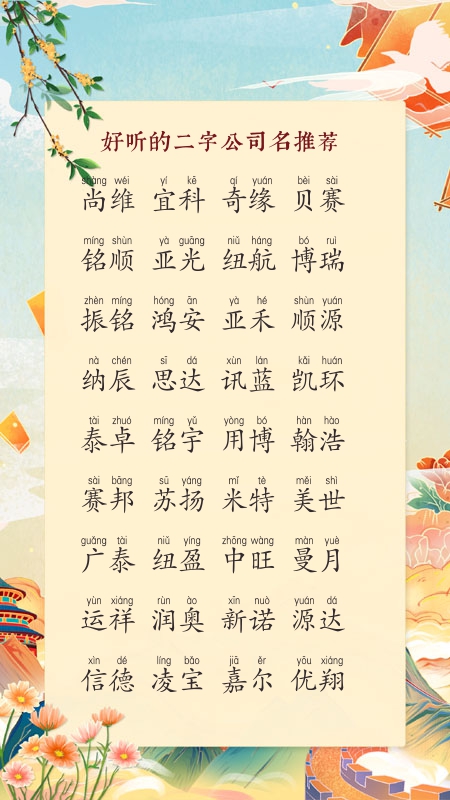 好听的二字公司名推荐
shàng wéi yí kē qí yuán bèi sài
尚维 宜科 奇缘 贝赛
míng shùn yà guāng niǔ háng bó ruì
铭顺 亚光 纽航 博瑞
zhèn míng hóng ān yà hé shùn yuán
振铭 鸿安 亚禾 顺源
nà chén sī dá xùn lán kǎi huán
纳辰 思达 讯蓝 凯环
tài zhuó míng yǔ yòng bó hàn hào
泰卓 铭宇 用博 翰浩
sài bāng sū yáng mǐ tè měi shì
赛邦 苏扬 米特 美世
guǎng tài niǔ yíng zhōng wàng màn yuè
广泰 纽盈 中旺 曼月
yùn xiáng rùn ào xīn nuò yuán dá
运祥 润奥 新诺 源达
xìn dé líng bǎo jiā ěr yōu xiáng
信德 凌宝 嘉尔 优翔